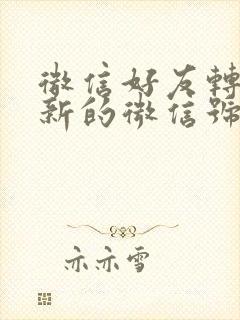 微信好友轉
新的微信號
亦亦雪